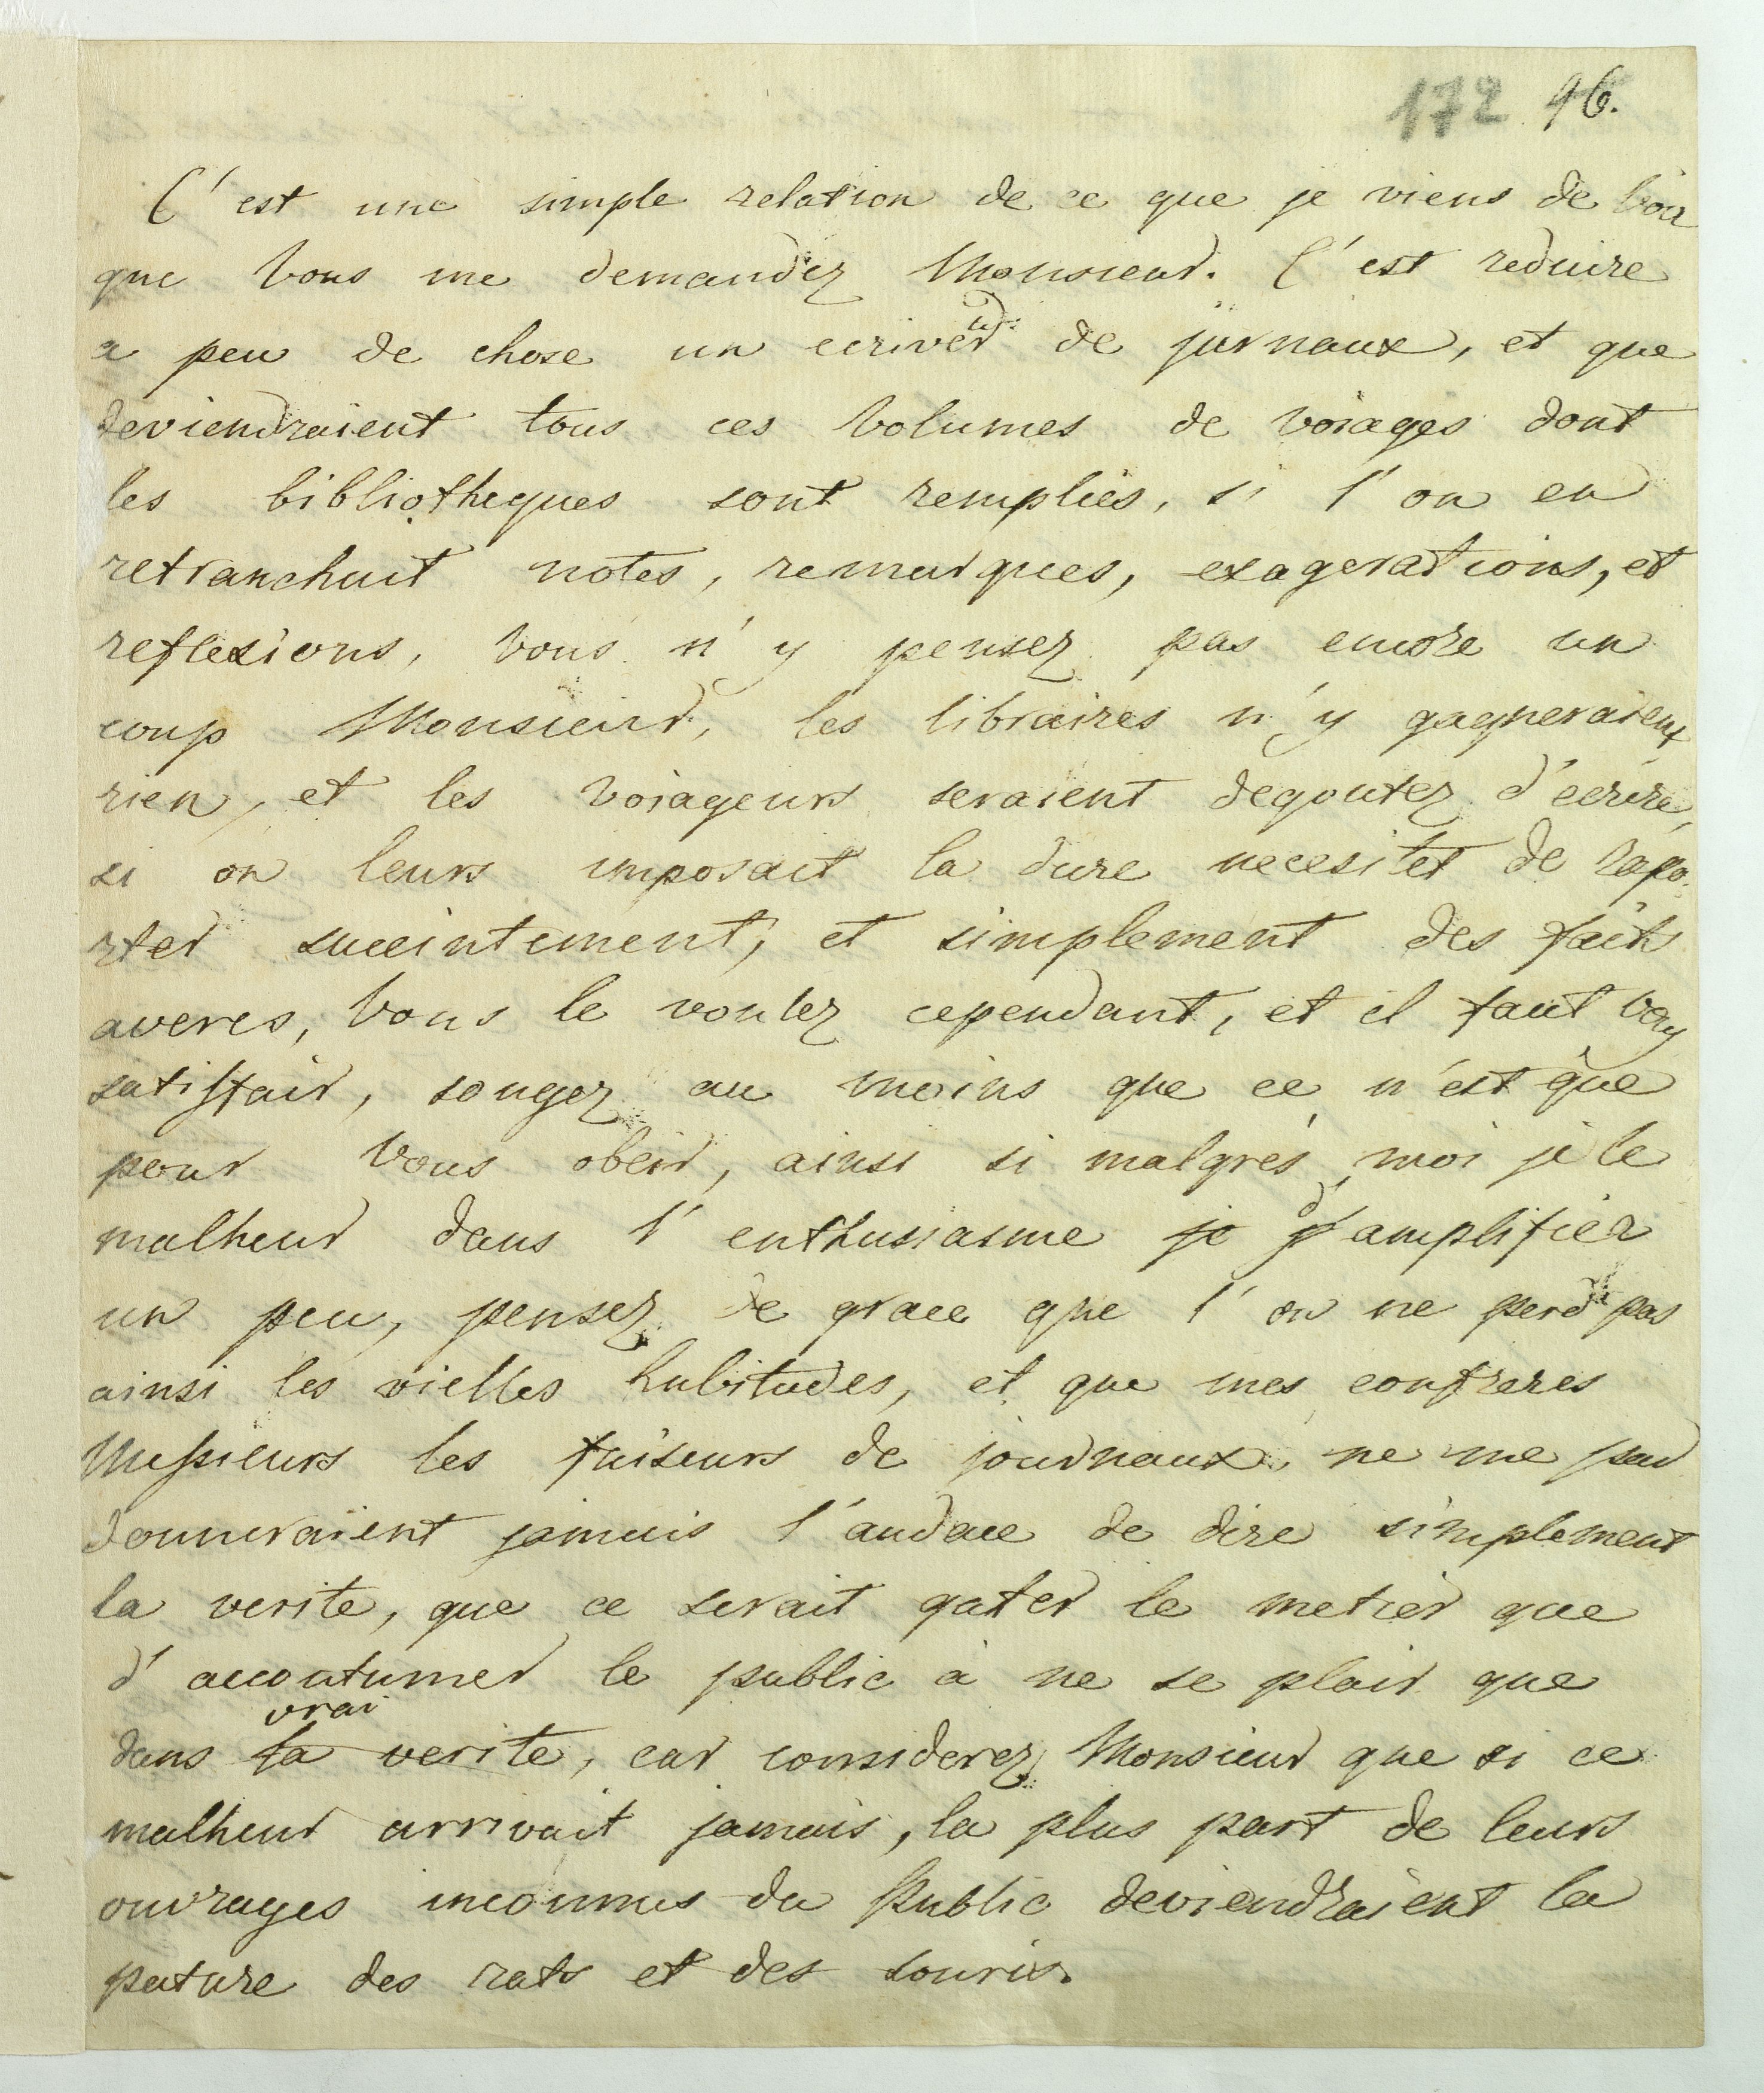 172 96.
C'est une simple relation de ce que je viens de voir
que vous me demandez Monsieur. C'est reduire
a peu de chose un ecriver de jurnaux, et que
deviendraient tous ces volumes de voiages dont
les bibliotheques sont remplies, si l'on en
retranchait notes, remarques, exagerations, et
reflexions, vous n'y pensez pas encore un
coup Monsieur, les libraires n'y gagneraient
rien, et les voiageurs seraient degoutez d'écrire,
si on leurs imposait la dure necesitét de rapo-
rter succintement, et simplement des faits
averes, vous le voulez cependant, et il faut vous
satisfair, songez au moins que ce n'est que
pour vous obeir, ainsi si malgrés moi j'ai le
malheur dans l'enthusiasme je d'amplifier
un peu, pensez de grace que l'on ne perd pas
ainsi les vielles habitudes, et que mes confreres
Messieurs les faiseurs de journaux, ne me par
donneraient jamais l'audace de dire simplement
la verite, que ce serait gater le metier que
d'accoutumer le public à ne se plair que
vrai
dans la verite, car considerez Monsieur que si ce
malheur arrivait jamais, la plus part de leurs
ouvrages inconnus du Public deviendraient la
pature des rats et des souris.